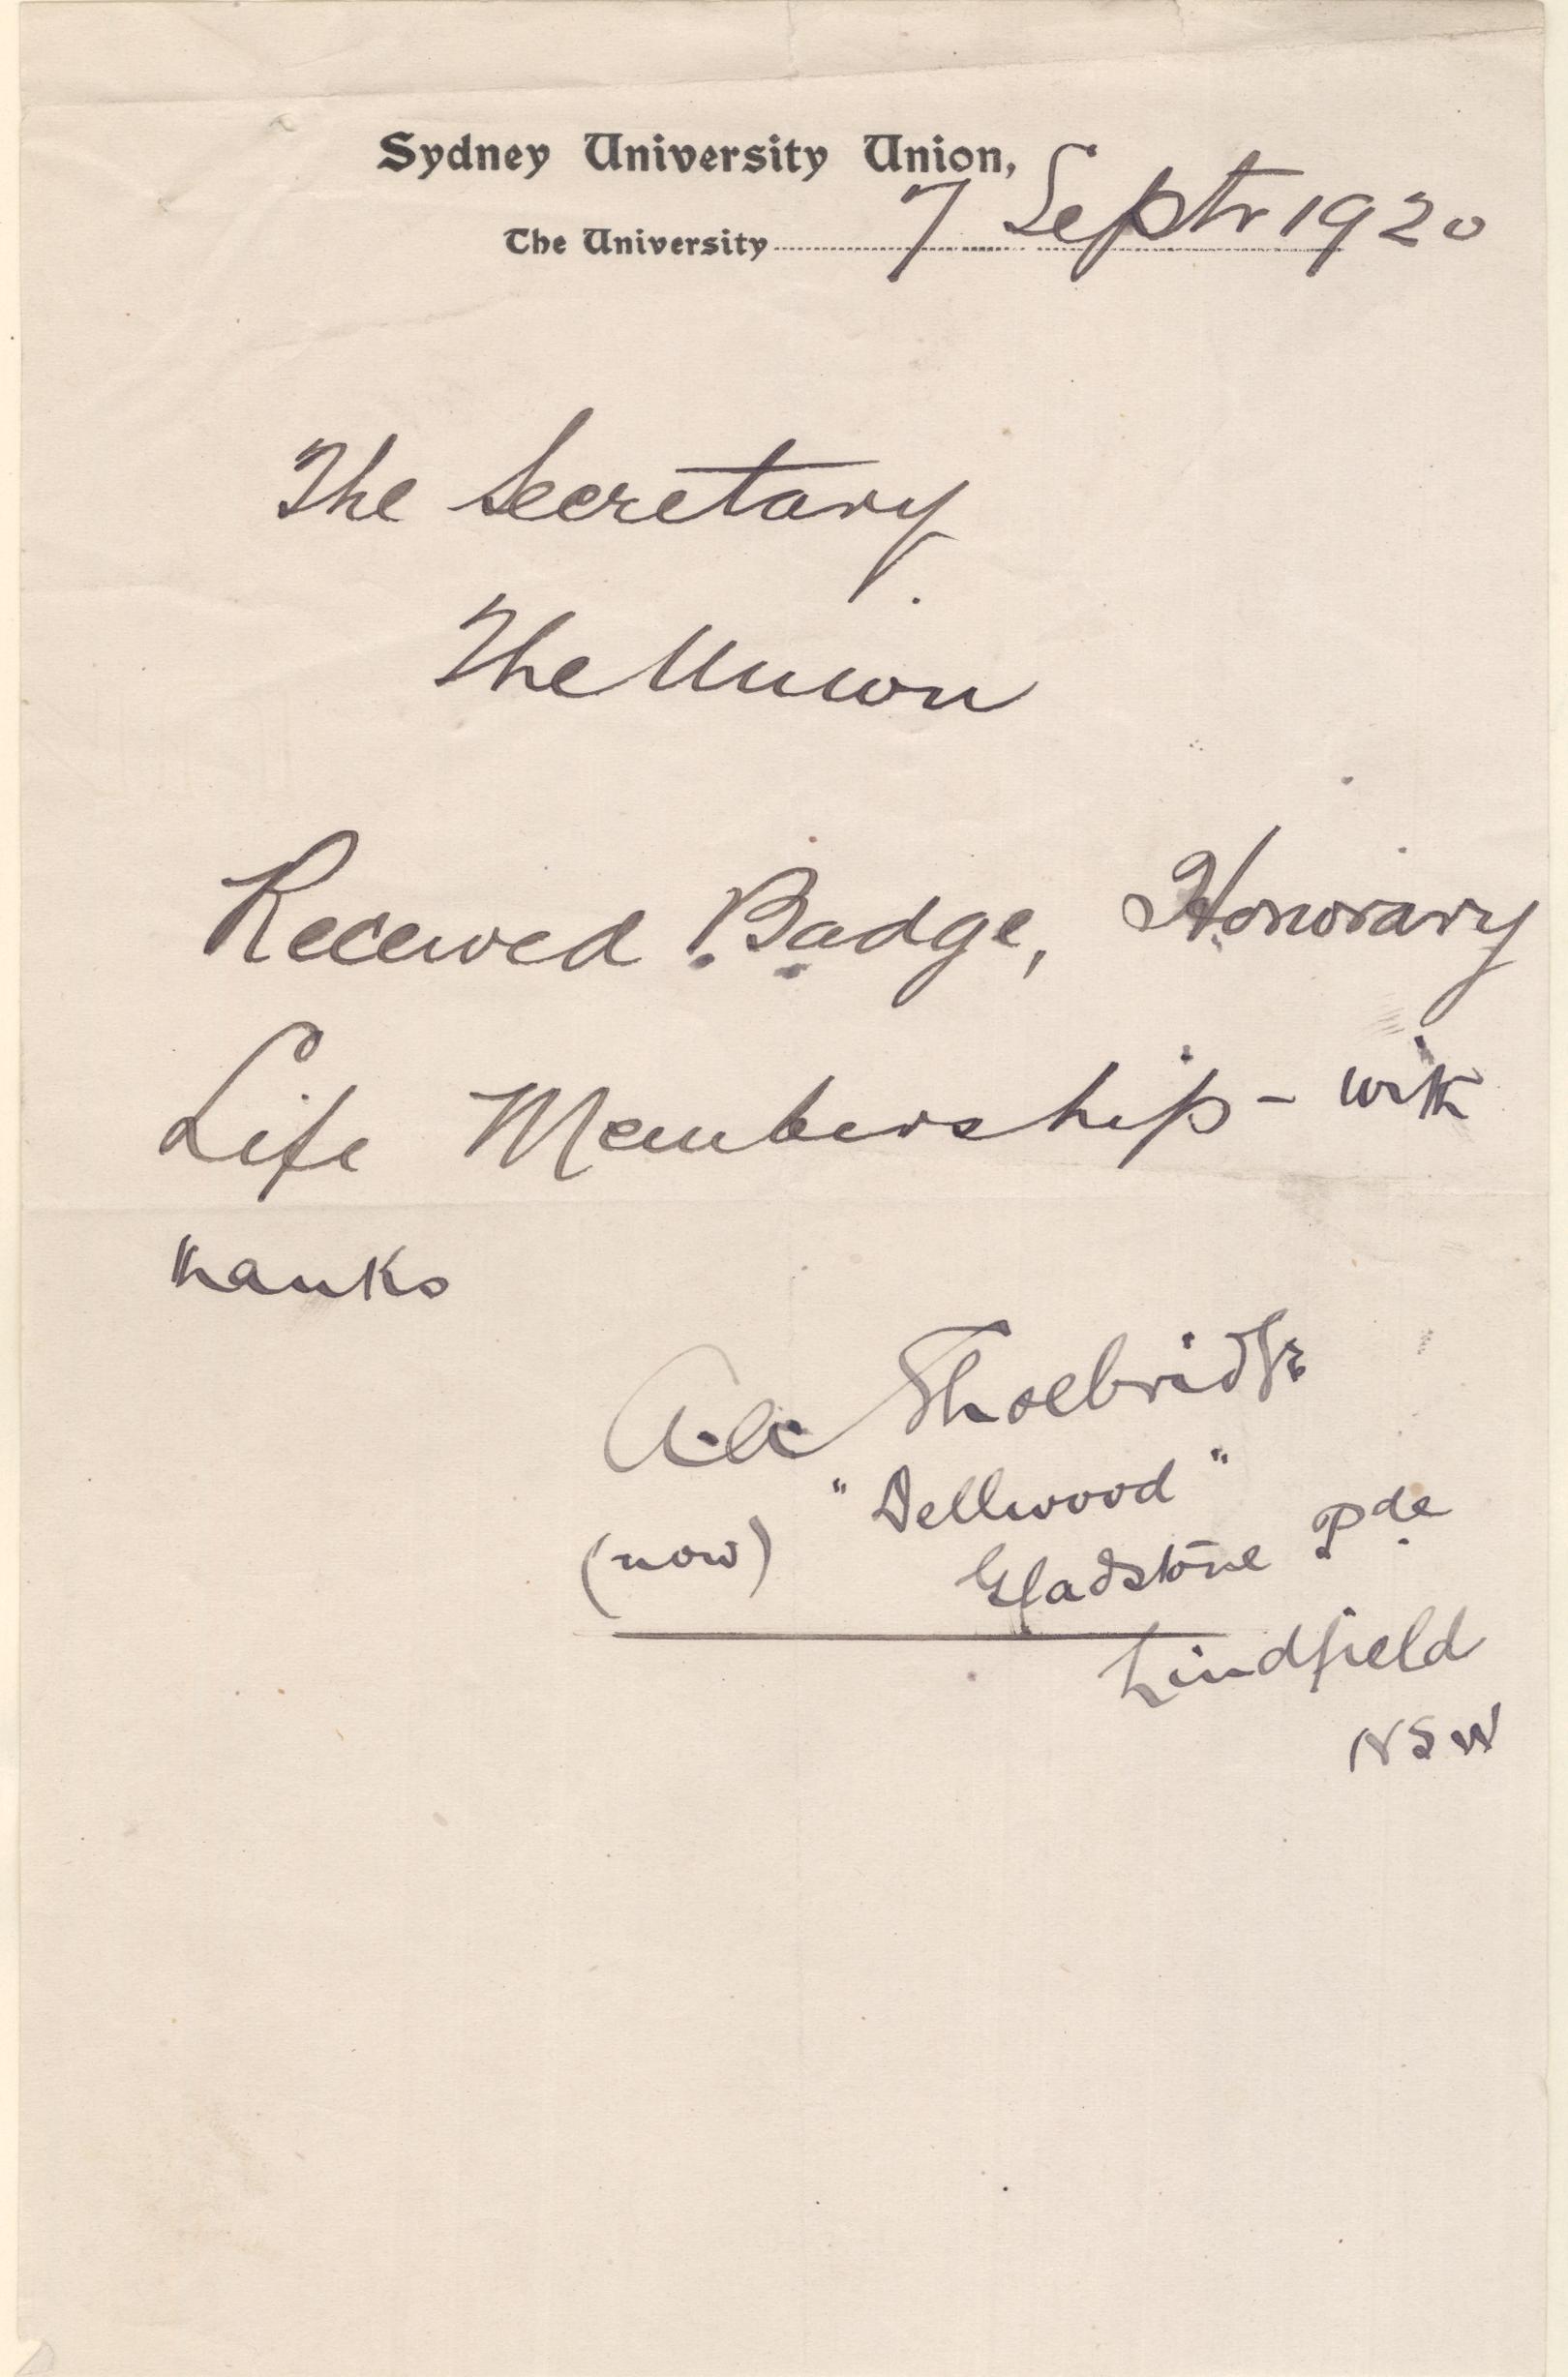 Sydney University Union,
The University 7 Septr 1920
The Secretary.
The Union
Received Badge, Honorary
Life Membership - with
thanks
Shoebridge
"Dellwood"
(now) Gladstone Pde
Lindfield
NSW